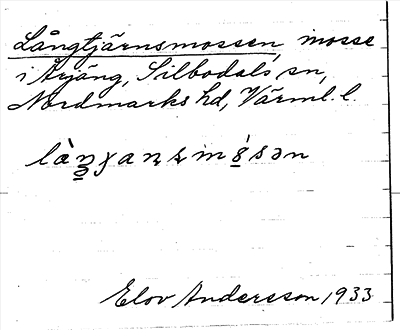 Långtjärnsmossen, mosse
i Årjäng, Silbodals sn,
Nordmarks hd, Värml. l.
Elov Andersson 1933